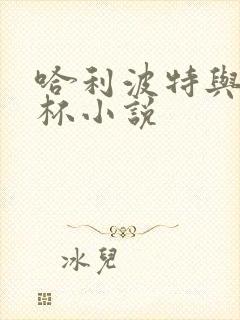 哈利波特與
杯小說
冰兒